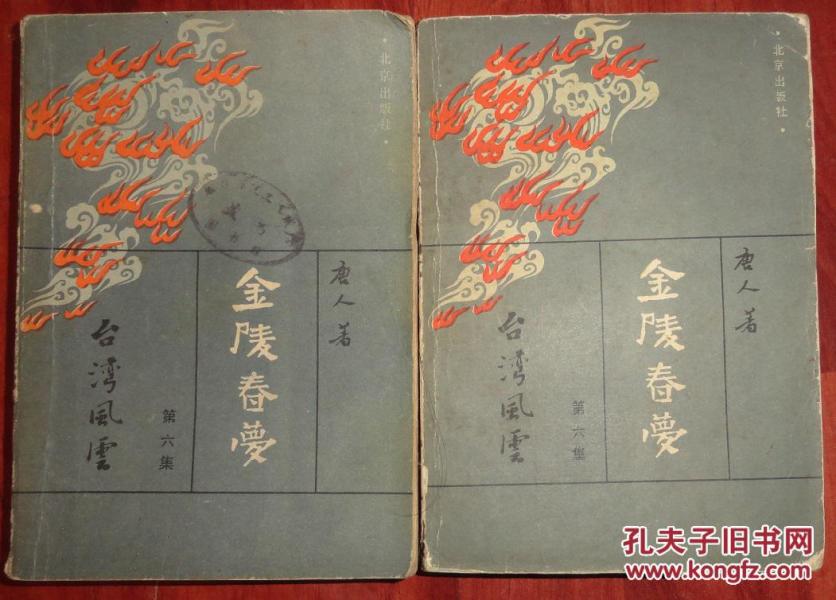 ·北京出版社·
唐人著
金陵春夢
台湾風雲
第六集
·北京出版社·
唐人著
金陵春夢
台湾風雲
第六集
孔夫子旧书网
www.kongfz.com